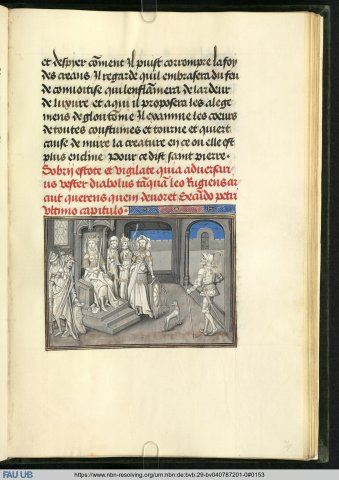 et despyer cõment Il puist corrompre la foy
des creans Il regarde quil embrasera du feu
de conuoitise qui lenflamera de lardeur
de luxure et a qui il proposera les alege
mens de gloutonie Il examine les coeurs
de toutes coustumes et tourne et quiert
cause de nuire la creature en ce ou elle est
plus encline Pour ce dist saint pierre.
Sobrij estote et vigilate quia aduersari
us vester diabolus tãquã leo Rugiens
querens quem deuoret Secũdo petri
vltimo capitulo.
FAU UB
https://www.nbn-resolving.org/urn:nbn:de:bvb:29-bv040787201-0#0153